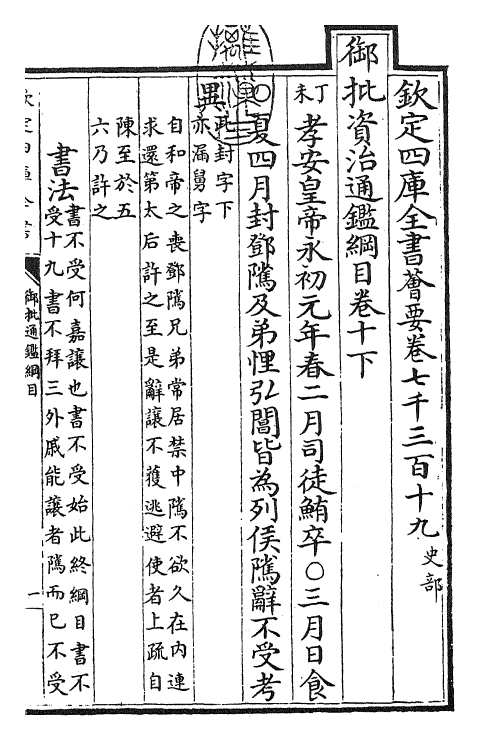 欽定四庫全書薈要卷七千三百十九史部
御批資治通鑑綱目卷十下
丁未孝安皇帝永初元年春二月司徒鮪卒○三月日食
○夏四月封鄧隲及弟悝弘閶皆為列侯隲辭不受考
異 封字下
亦漏舅字
自和帝之喪鄧隲兄弟常居禁中隲不欲久在内連
求還第太后許之至是辭讓不獲逃避使者上疏自
陳至於五
六乃許之
書法書不受何嘉讓也書不受始此終綱目書不
受十九書不拜三外戚能讓者隲而已不受
欽定四庫全書
御批通鑑綱目
一